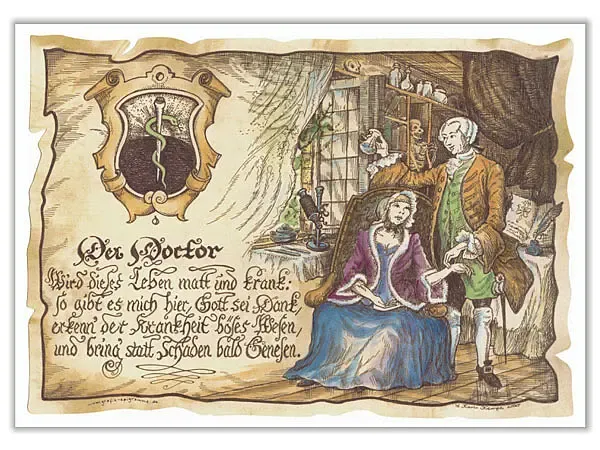 Der Doctor
Wird dieses Leben matt und krank:
so gibt es mich hier, Gott sei Dank,
erkenn der Krankheit böses Wesen,
und bring statt Schaden bald Genesen.